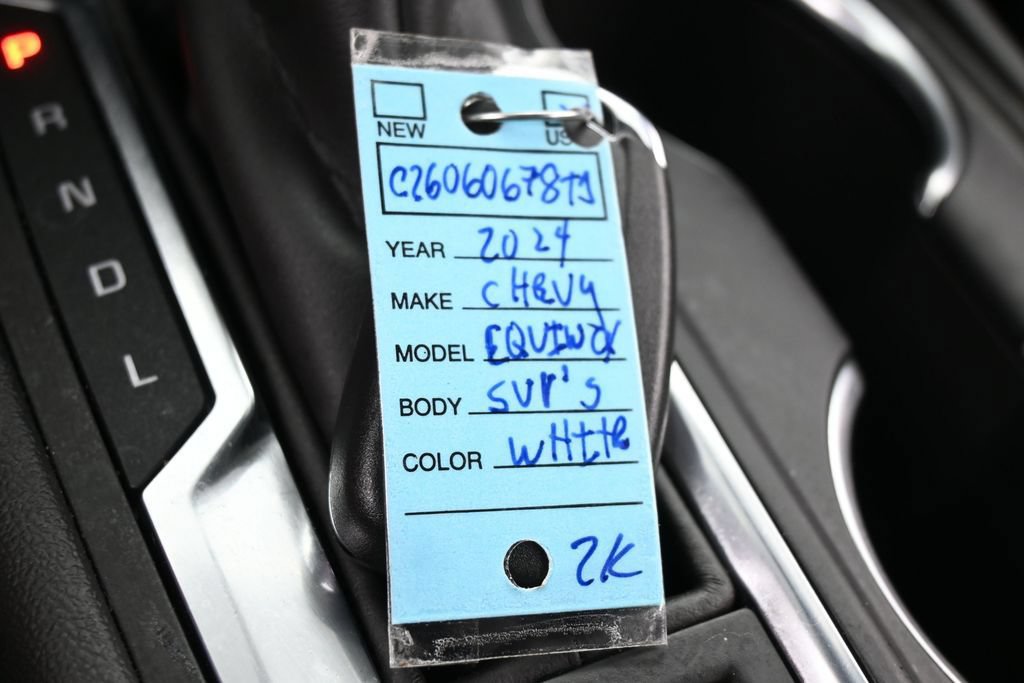 P
R
N
D
L
NEW
US
C26060678TJ
YEAR 2024
MAKE CHEVY
MODEL EQUINOX
BODY SUV'S
COLOR WHITE
2K